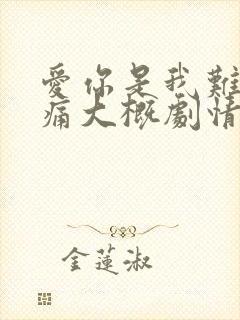 愛你是我難
痛大概劇情
金蓮淑